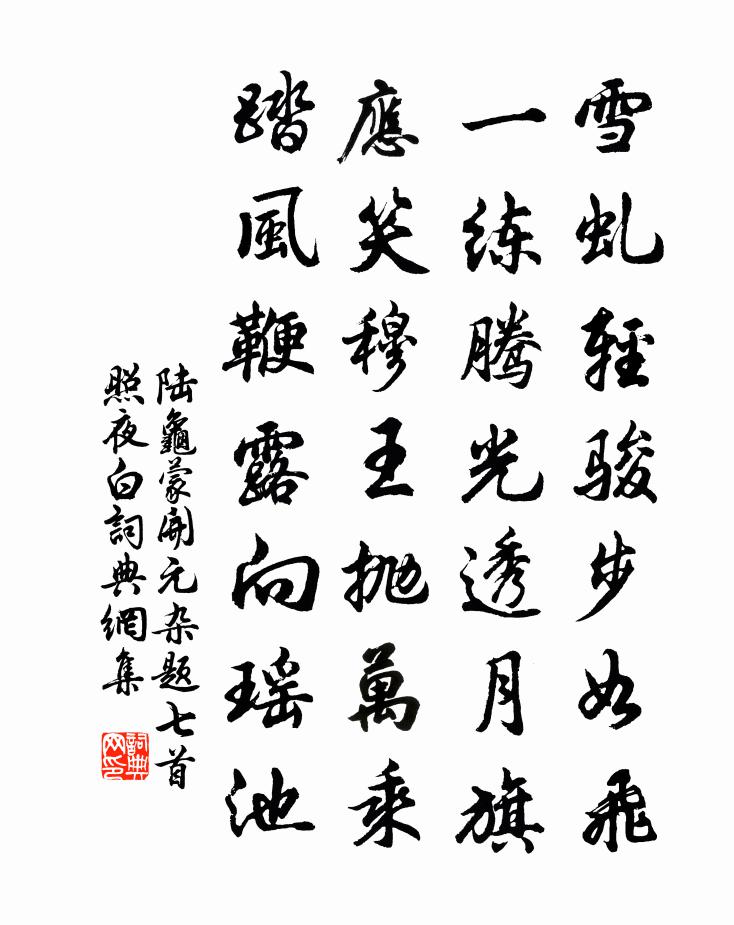 雪虬輕骏步如飛
一练腾光透月旗
應笑穆王抛萬乘
踏風鞭露向瑶池
陆龜蒙開元杂题七首
照夜白詞典網集
詞典网印